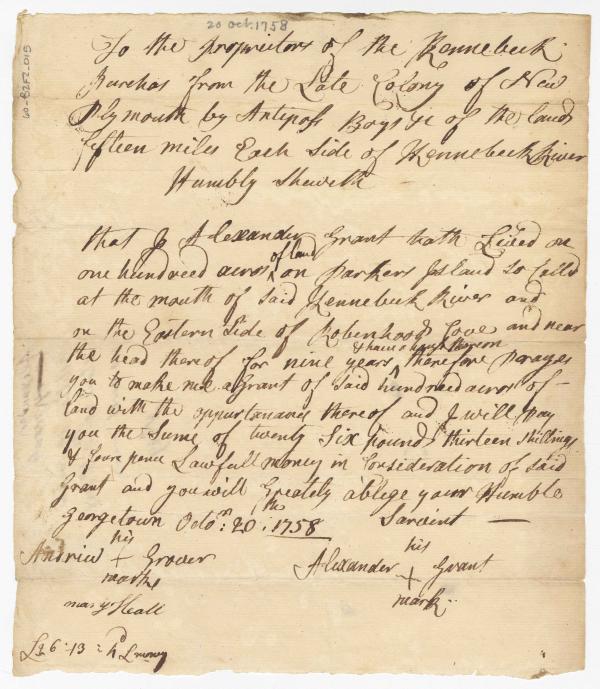 20 Oct. 1758
60-B2F2-015
To the Proprietors of the Kennebeck
Purchas from the Late Colony of New
Plymouth by Antipass Boys &c of the land
fifteen miles Each Side of Kennebeck River
Humbly Sheweth
that I Alexander Grant hath Lived on
one hundreed acros of land on Parkers Island So Calld
at the mouth of said Kennebeck River and
on the Eastern Side of Robinhoods Cove and near
the head there of for nine years & have a house thereon therefore Prayes
you to make me a grant of Said hundreed acros of
land with the appurtanances there of and I will pay
you the Sume of twenty Six pounds thirteen Shillings
& foure pence Lawfull money in Consideration of said
Grant and you will Greately oblege your Humble
Georgetown Octor. 20th. 1758 Sarvint
Andriw his + marke Grover
Alexander his + mark Grant
mary Heall
£26:13:4 Lmoney